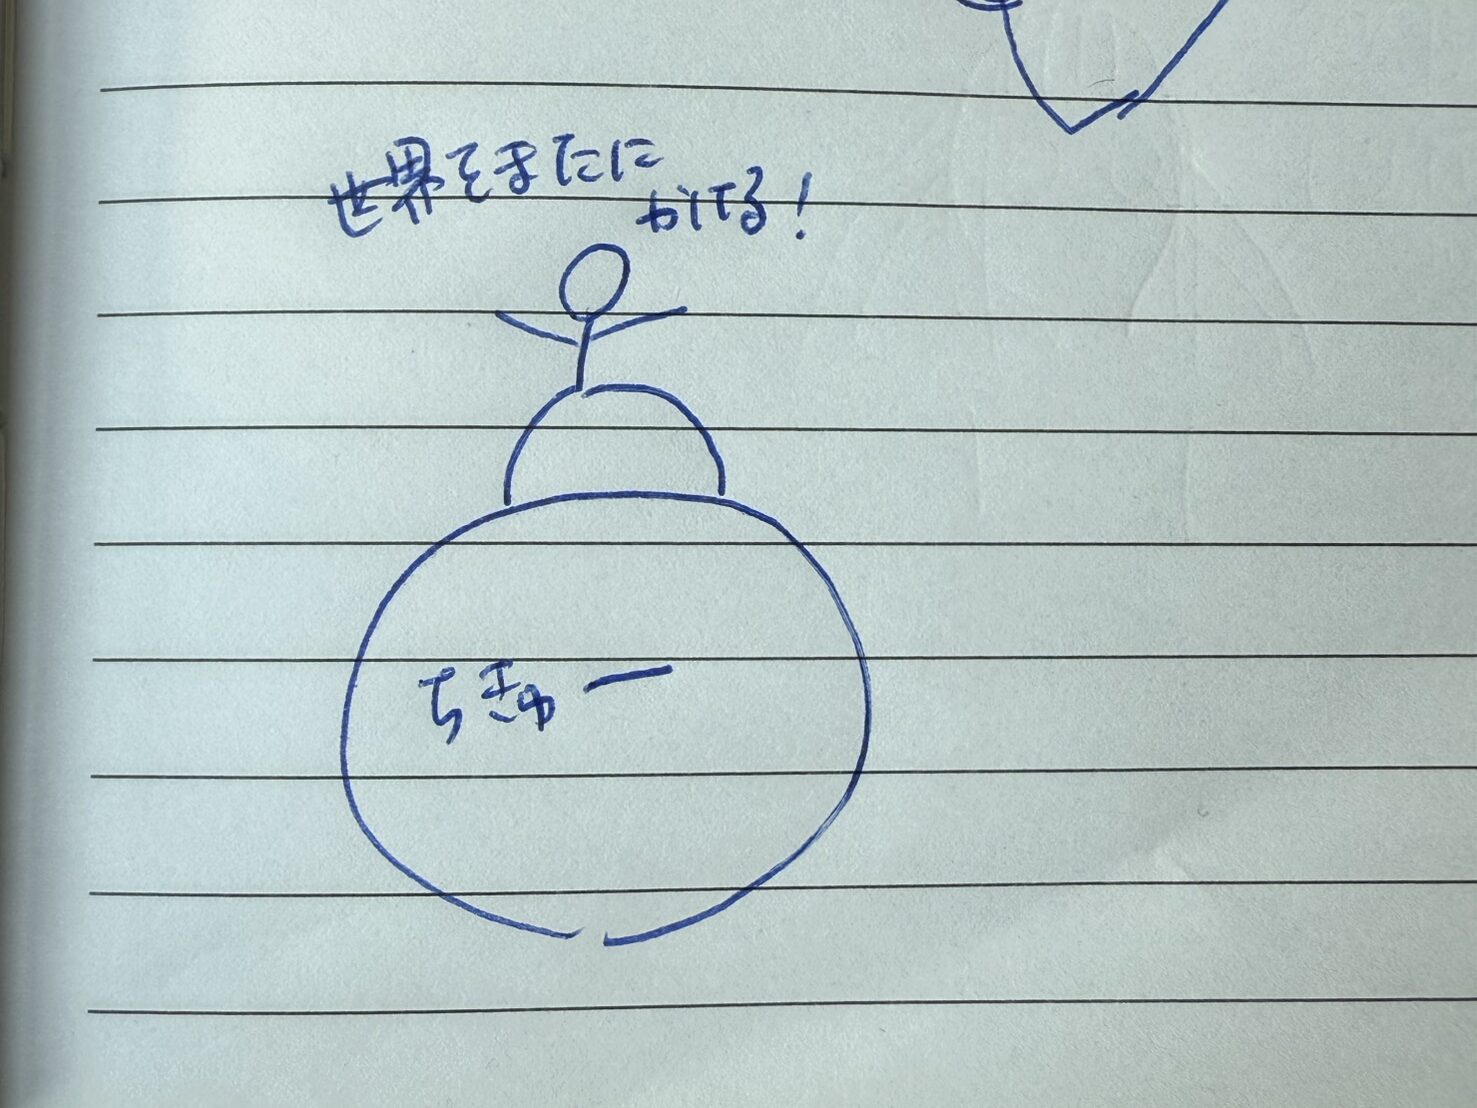 世界をまたに
かける!
ちきゅー